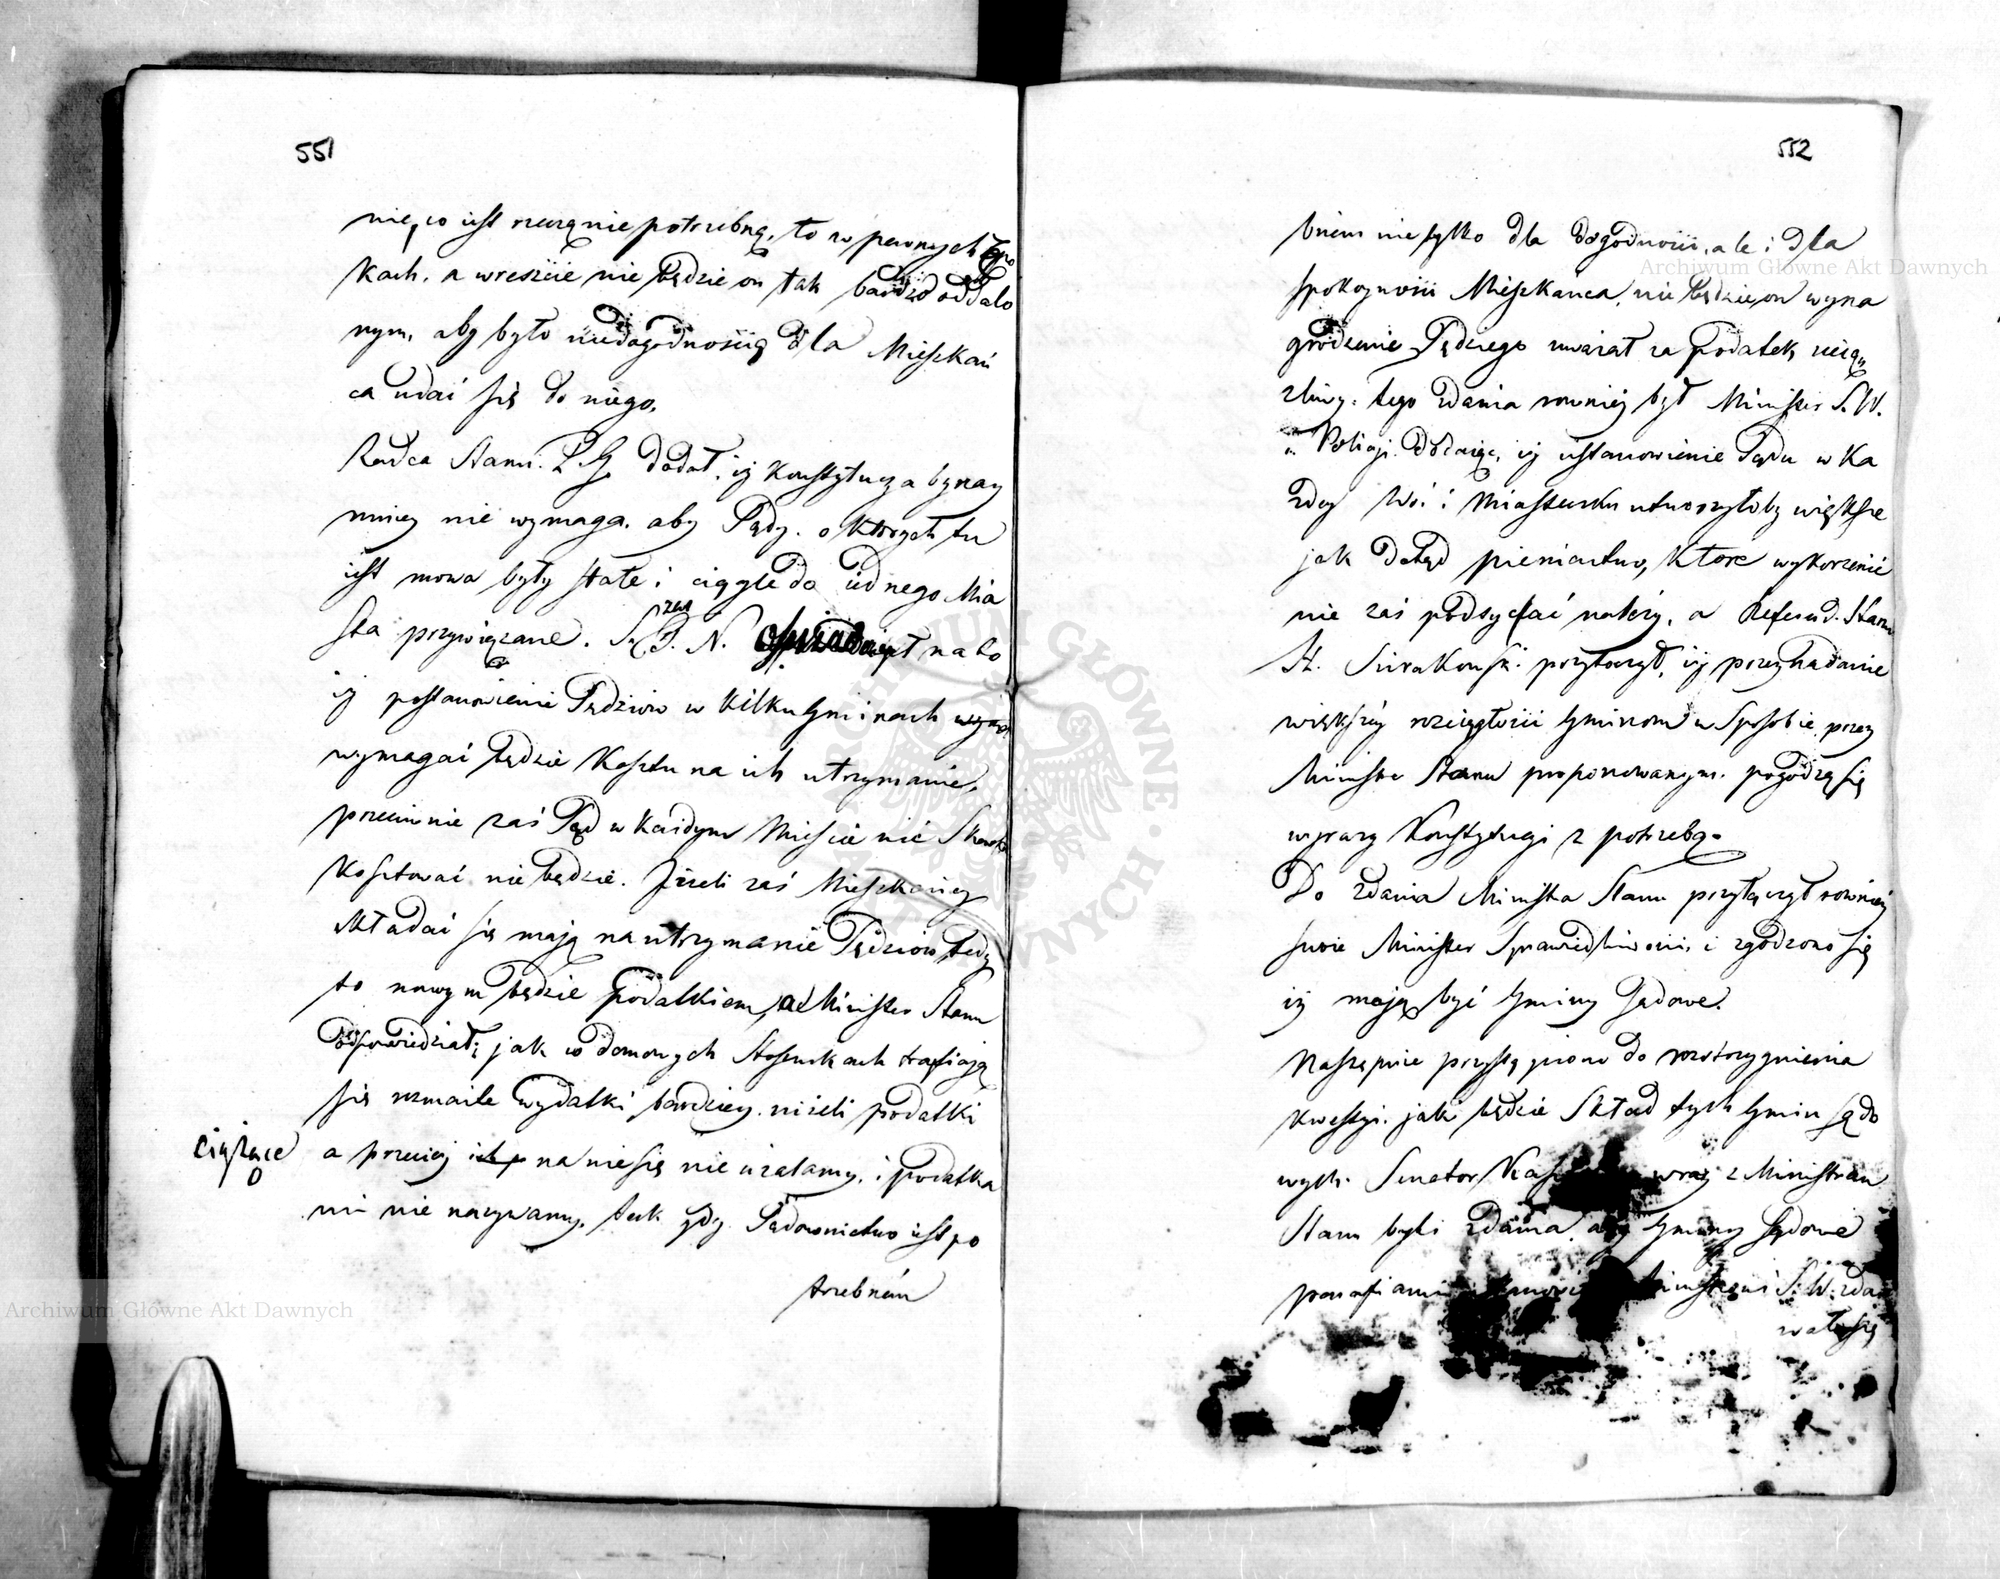 551
nie, co iest rzeczą nie potrzebną, to w pewnych Epo
kach, a wreszcie nie będzie on tak bardzo oddalo
nym, aby było niedogodnością dla Mieszkań
ca udać się do niego.
Radca Stanu L. G. dodał, iż Konstytucya bynay
mniey nie wymaga, aby Sądy, o których tu
iest mowa były stałe i ciągle do iednego Mia
sta przywiązane. S. P. N. na to
iż postanowienie Sędziow w kilku Gminach
wymagać będzie kosztu na ich utrzymanie,
przeciwnie zaś Sąd w każdym Mieście nic Skarb
kosztować nie będzie. Jżeli zaś Mieszkańcy
składać się maią na utrzymanie Sędziow tedy
to nowym będzie podatkiem, ad Minister Stanu
odpowiedział; jak w domowych Stosunkach trafiaią
się rozmaite wydatki bardziey niżeli podatki
ciążące
a przeciey na nie się nie użalamy, i podatka
mi nie nazywamy, tak gdy Sądownictwo iest po
trzebném
552
bnem nie tylko dla dogodności, ale i dla
spokoyności Mieszkańca, nie będzie on wyna
grodzenie Sędziego uważał za podatek ucią„
żliwy. tego zdania rownież był Minister S. W.
i Policyi. dodaiąc, iż ustanowienie Sądu w Ka
żdey Wsi i Miasteczku utworzyłoby większe
jak dotąd pieniactwo, ktore wykorzenić
nie zaś podsycać należy, a Referend. Stanu
St. Sierakowski przytoczył, iż przez nadanie
większéy rozciągłości Gminom w Sposobie przez
Ministra Stanu proponowanym, pogodzą się
wyrazy Konstytucyi z potrzebą.
Do zdania Ministra Stanu przyłączył rownież
swoie Minister Sprawiedliwości, i zgodzono się
iż maią być Gminy Sądowe.
Następnie przystąpiono do rozstrzygnienia
kwestyi. jaki będzie Skład tych Gmin sądo
wych. Senator wraz z Ministrem
Stanu byli zdania, aby Gminy Sądowe
parafiami S. W. zda
wało się
Archiwum Główne Akt Dawnych
Archiwum Główne Akt Dawnych
ARCHIWUM GŁÓWNE AKT DAWNYCH